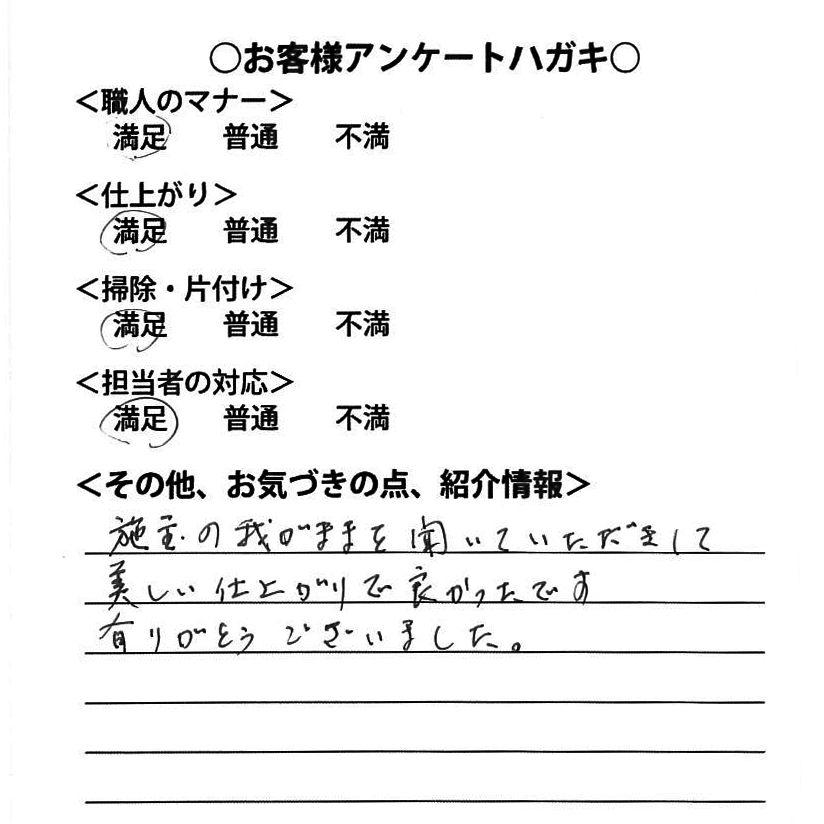 ○お客様アンケートハガキ○
＜職人のマナー＞
満足 普通 不満
＜仕上がり＞
満足 普通 不満
＜掃除・片付け＞
満足 普通 不満
＜担当者の対応＞
満足 普通 不満
＜その他、お気づきの点、紹介情報＞
施主の我がままを聞いていただきまして
美しい仕上がりで良かったです
有りがとうございました。